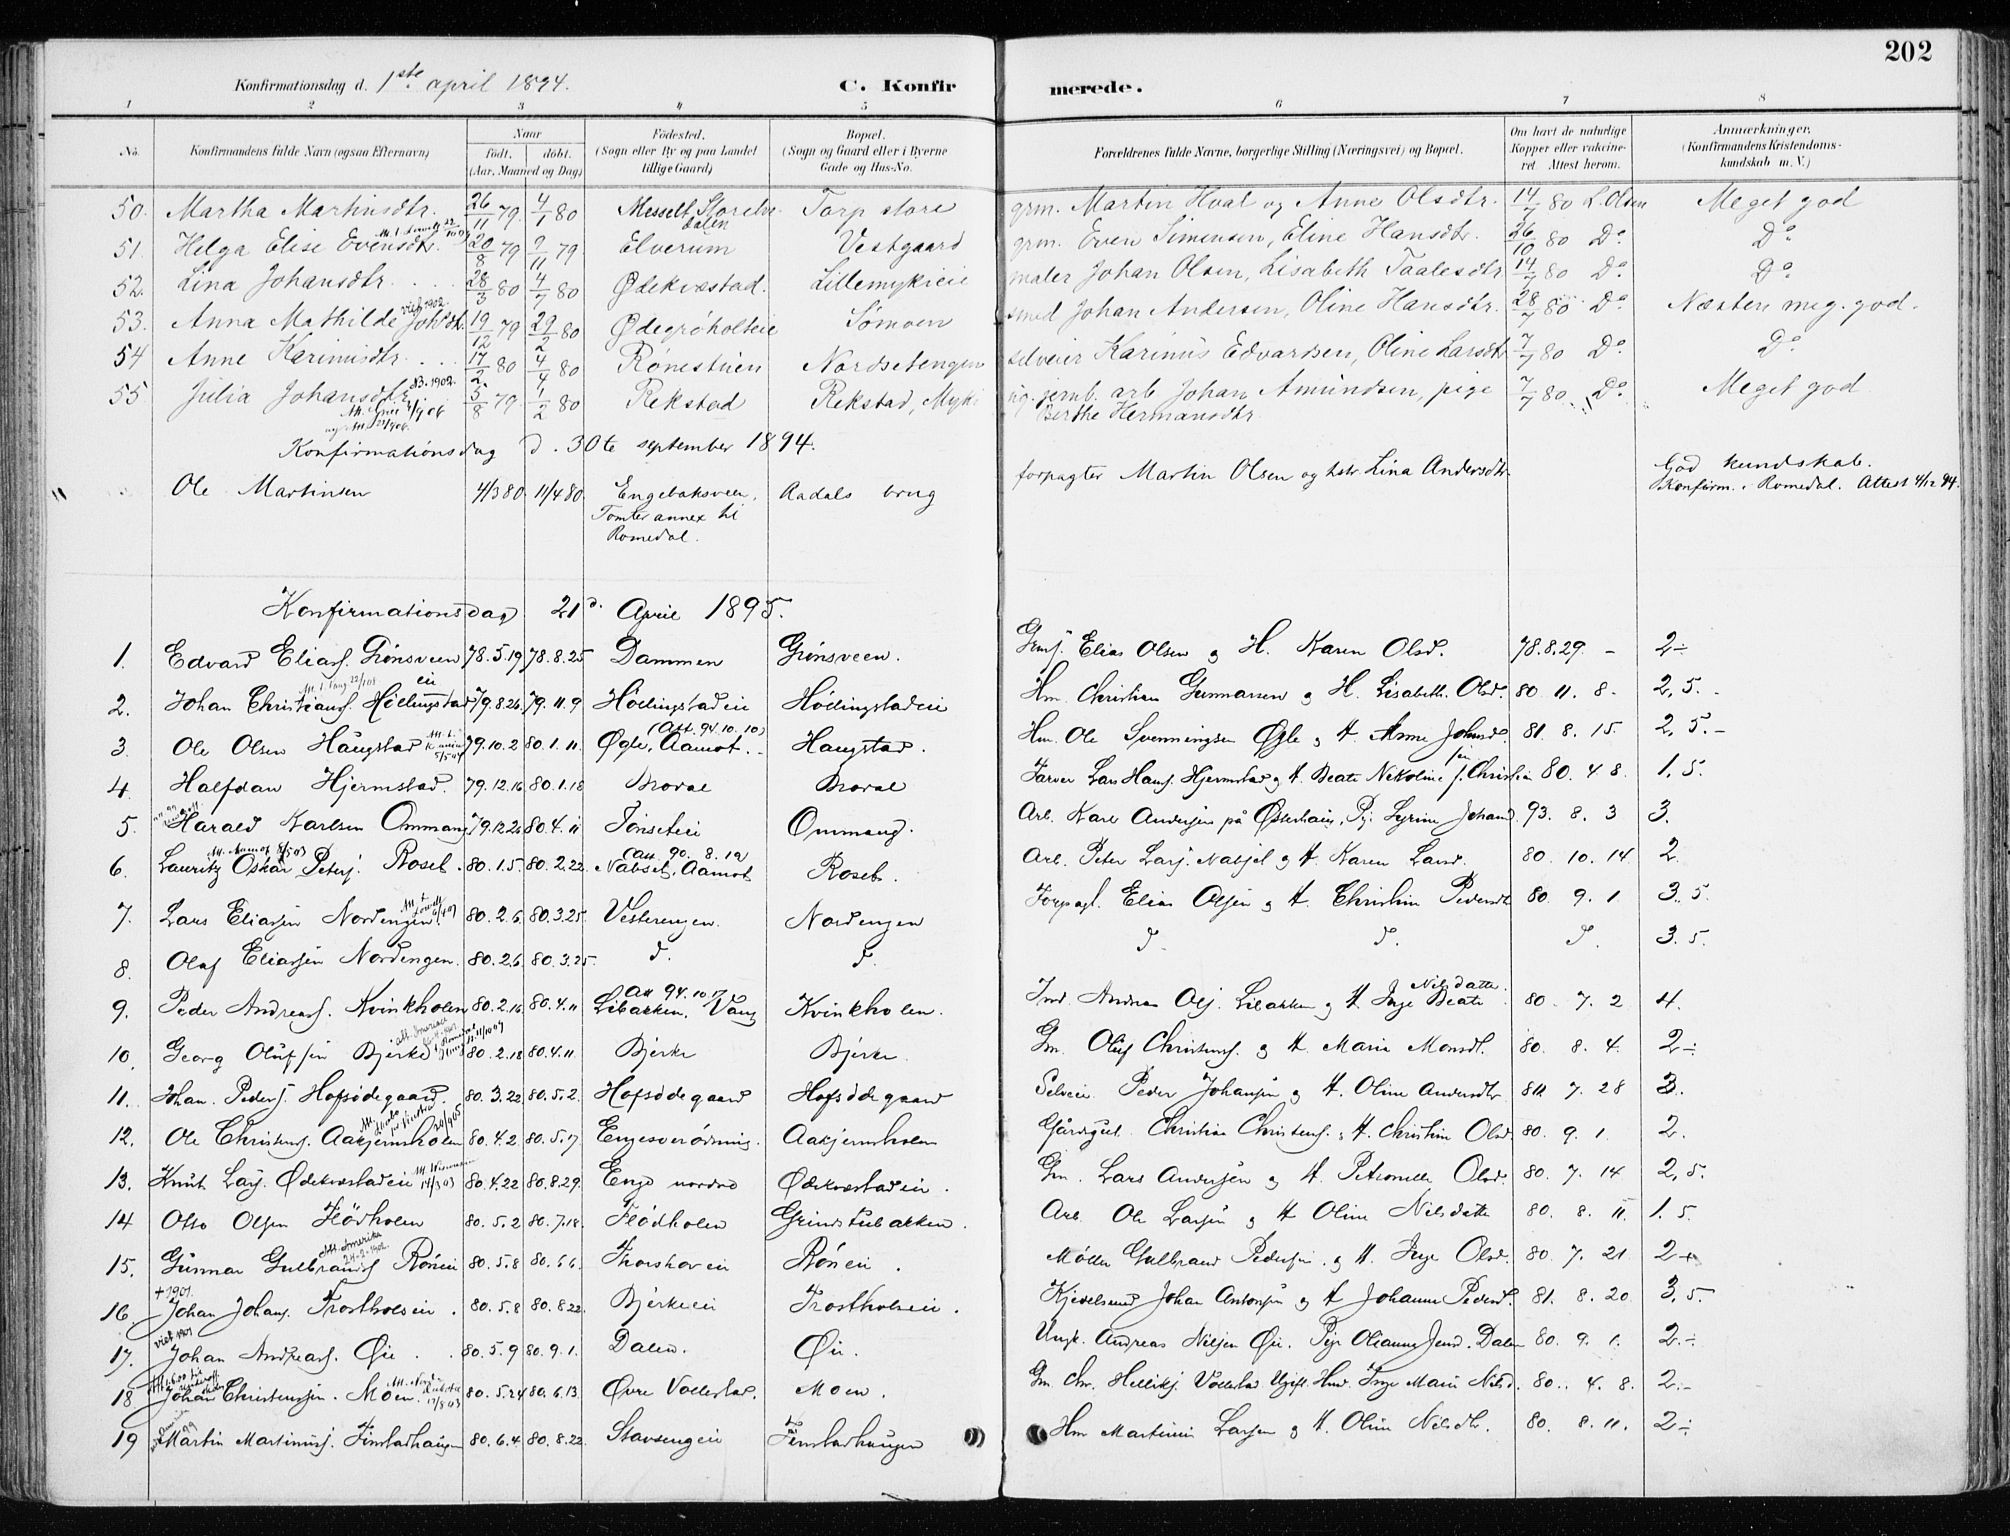 202
Konfirmationsdag d. 1ste april 1894. C. Konfir merede.
1 2 3 4 5 6 7 8
No. Konfirmandens fulde Navn (ogsaa Efternavn) Naar født. døbt. (Aar, Maaned og Dag) Fødested. (Sogn eller By og paa Landet tillige Gaard) Bopæl. (Sogn og Gaard eller i Byerne Gade og Hus-No. Forældrenes fulde Navne, borgerlige Stilling (Næringsvei) og Bopæl. Om havt de naturlige Kopper eller vakcineret. Attest herom. Anmærkninger. (Konfirmandens Kristendomskundskab m. V.)
50. Martha Martinsdtr. 26/11 79 4/1 80 Messelt, Storelvdalen Torp store grm. Martin Hval og Anne Olsdtr. 14/7 80 L. Olsen Meget god
51. Helga Elise Evensdtr. 20/8 79 9/11 79 Elverum Vestgaard grm. Even Simensen, Eline Hansdtr. 26/10 80 Do Do
52. Lina Johansdtr. 28/3 80 4/7 80 Ødekvæstad. Lillemykieie maler Johan Olsen, Lisabeth Taalesdtr 14/7 80 Do Do
53. Anna Mathilde Johsdtr. viet 1902. 19/12 79 29/2 80 Ødegrøholteie Sømoen smed Johan Andersen, Oline Hansdtr. 28/7 80 Do Næsten meg. god.
54 Anne Karinusdtr. 17/2 80 4/4 80 Rønestuen Nordsetengen selveier Karinus Edvardsen, Oline Larsdtr 7/7 80 Do Do
55 Julia Johansdtr. 5/8 79 1/2 80 Rekstad Rekstad, Myki ug. jernb. arb Johan Amundsen, pige Berthe Hermansdtr. 7/7 80 Do Meget god
Konfirmationsdag d. 30te september 1894.
" Ole Martinsen 4/3 80 11/4 80 Engebaksveen, Tomter annex til Romedal. Aadals brug forpagter Martin Olsen og hstr. Lina Andersdtr. God kundskab. Konfirm. i Romedal. Attest 4/12 94.
Konfirmationsdag 21d. April 1895.
1. Edvard Eliass. Grønsveen 78.5.19 78.8.25 Dammen Grønsveen. Elias Olsen g H. Karen Olsd. 78.8.29. - 2÷
2. Johan Christians. Hødlingstadeie 79.8.26 79.11.9 Hødlingstadeie Hødlingstadeie Hm. Christian Gunnarsen g H. Lisabeth Olsd. 80 11. 8. 2,5.-
3. Ole Olsen Haugstad 79.10.2 80.1.11. Øgle, Aamot. (Att. 94.10.10) Haugstad. Hm. Ole Svenningsen Øgle g H. Anne Johnsd. 81. 8. 15. 2,5.-
4. Halfdan Hjermstad. 79.12.16 80.1.18 Farver Lars Hans. Hjermstad g H. Beate Nikoline f. Christi 80. 4. 8. 1,5.
5. Harald Karlsen Ommang 79.12.26 80.4.11 Ommang. Arb. Karl Andersen på 93. 8. 3 3.
6. Lauritz Oskar Peters. Roset. 80.1.5 80.2.22. Nabset, Aamot (Att. 90. 8. 19) Roset. Arb. Peter Lars. g H. Karen Larsd. 80. 10. 14 2
7. Lars Eliassen Nordengen 80.2.6 80.3.25. Vesterengen. Nordengen Forpagt. Elias Olsen g H. Christin Pedersdt 80. 9. 1. 3.5.
8. Olaf Eliassen Nordengen. 80.2.6 80.3.25. d. d. d. d. d. 3.5.
9. Peder Andreass. Kvinkholen 80.2.16 80.4.11 Libakken, Vang Att 94.10.17 Kvinkholen. Ind. Andreas Ols. Libakken g H. Inge Beate Nilsdatter 80. 7. 2 4.
10. Georg Olufsen Bjerke 80.2.18 80.4.11. Bjerke Bjerke Gm. Oluf Christens. g H. Marie Monsdt. 80. 8. 4. 2÷
11. Johan Peders. Hofsødegaard. 80.3.22 80.5.2. Hofsødegaard Hofsødegaard Selveier Peder Johansen g H. Oline Andersdtr 7. 28 3.
12. Ole Christens. Aakjernholen 80.4.2 80.5.17. Aakjernholen Christian Christens. g H. Christine Olsd 80. 9. 1. 2.
13. Knut Lars. Ødekvæstadeie 80.4.22 80.8.29. Enge nordre Ødekvæstadeie. Gm. Lars Andersen g H. Petronelle Olsd. 80. 7. 14 2,5.
14 Otto Olsen Flødholen 80.5.2 80.7.18. Flødholen Grindstubakken. Arb. Ole Larsen g H Oline Nilsdatter 80. 8. 11. 1.5.
15. Gunnar Gulbrands Røneie Att. Amerika 80.5.8 80.6.6. Thorshoveie Røneie. Møller Gulbrand Pedersen. g H. Inge Olsd. 80. 7. 21 2+
16. Johan Johans. Frostholseie. +1901. 80.5.8 80.8.22. Bjerkeeie Frostholseie. Kjedelsmed Johan Antonsen g H Johanne Pedersd. 81. 8. 20 3,5.
17. Johan Andreass. Øie viet 1901 80.5.9 80.9.1. Dalen. Øie. Ungk. Andreas Nilsen Øie. Pige Olianne Jensd. Dalen 80. 9. 1. 2÷
18 Johan Christensen. Moen. 80.5.24 80.6.13. Øvre Vollestad. Moen. Gm. Chr. Vollestad Inge Marie Nilsd. 80. 4. 8. 2.-
19 Martin Martinus. Finstadhaugen 80.6.4. 80.8.22. Stavsengeie Finstadhaugen Hm Martinus Larsen g H. Oline Nilsdtr. 80. 8. 11. 2÷